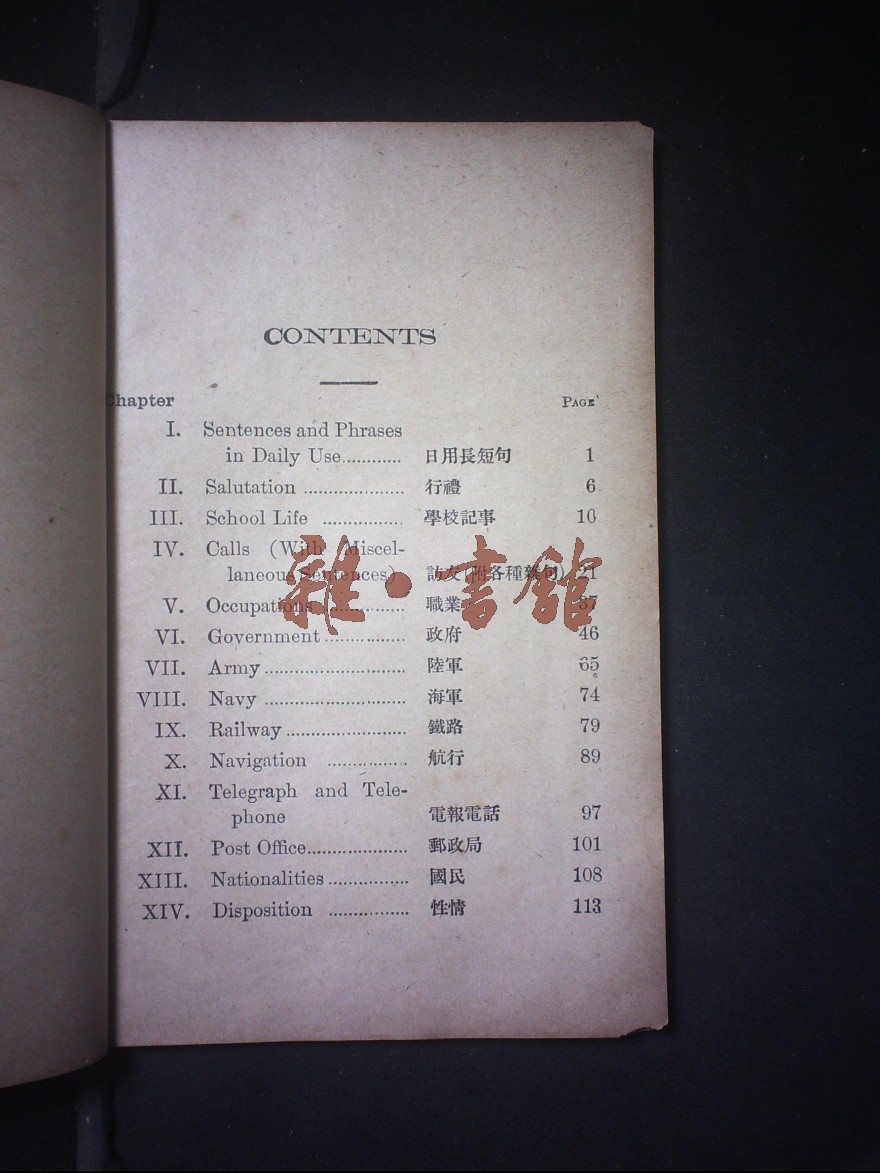 CONTENTS
Chapter PAGE
I. Sentences and Phrases
in Daily Use............ 日用長短句 1
II. Salutation .................... 行禮 6
III. School Life ................ 學校記事 10
IV. Calls (With Miscel-
laneous Sentences) 訪友(附各種雜句) 21
V. Occupations ................ 職業 37
VI. Government ................ 政府 46
VII. Army ............................ 陸軍 65
VIII. Navy ............................ 海軍 74
IX. Railway ........................ 鐵路 79
X. Navigation ................ 航行 89
XI. Telegraph and Tele-
phone 電報電話 97
XII. Post Office.................... 郵政局 101
XIII. Nationalities ................ 國民 108
XIV. Disposition ................ 性情 113
雜·書館